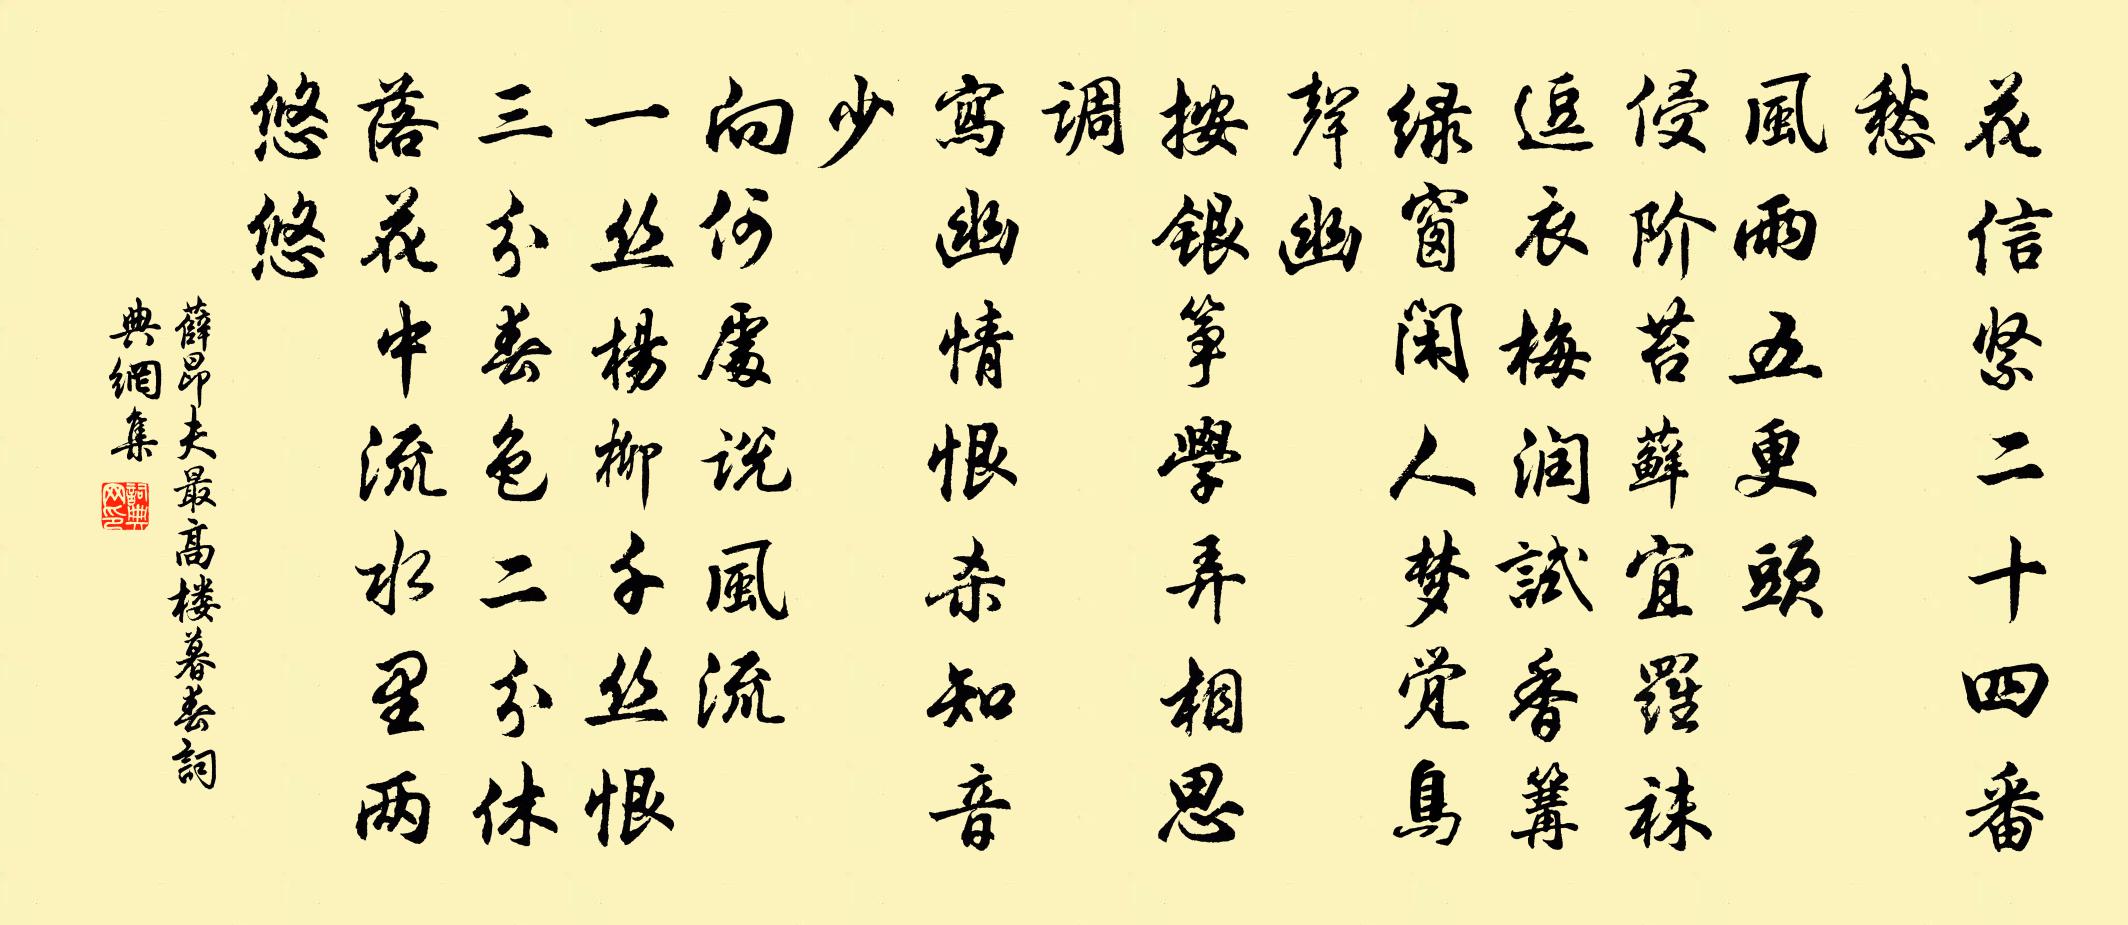 花信紧二十四番
愁
風雨五更頭
侵阶苔蘚宜羅袜
逗衣梅润試香篝
绿窗闲人梦觉鳥
聲幽
按银筝學弄相思
调
寫幽情恨杀知音
少
向何處说風流
一丝楊柳千丝恨
三分春色二分休
落花中流水里两
悠悠
薛昂夫最高楼暮春詞
典網集
詞典网印